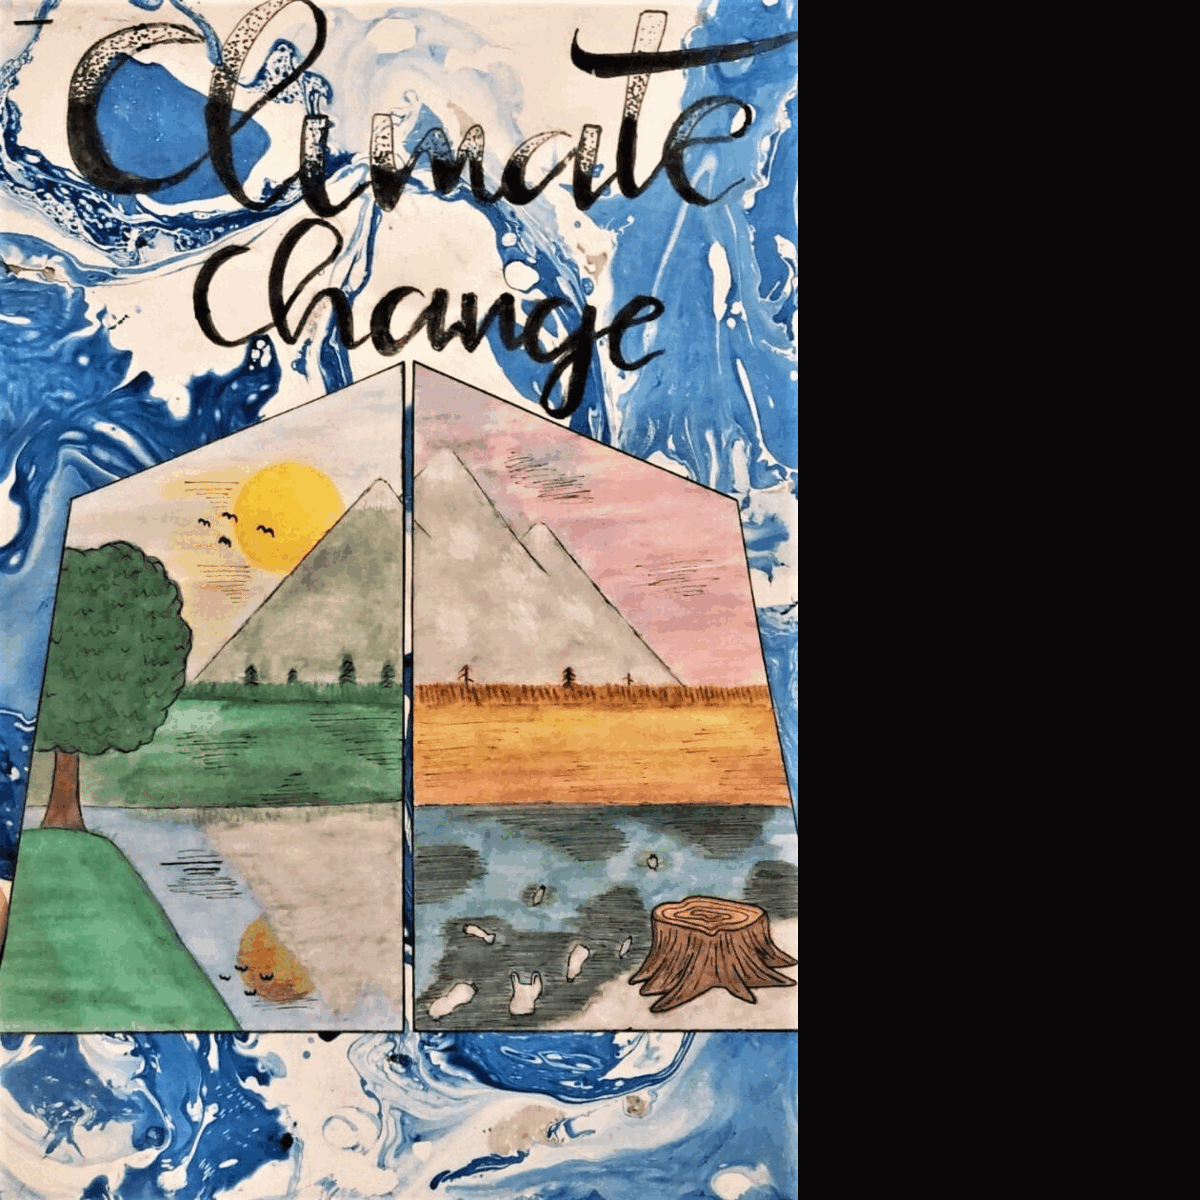 Climate
change